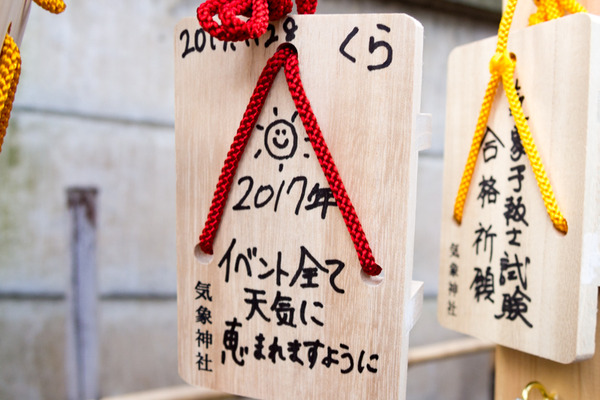 くら
2017年
イベント全て
天気に
恵まれますように
気象神社
気象予報士試験
合格祈願
気象神社